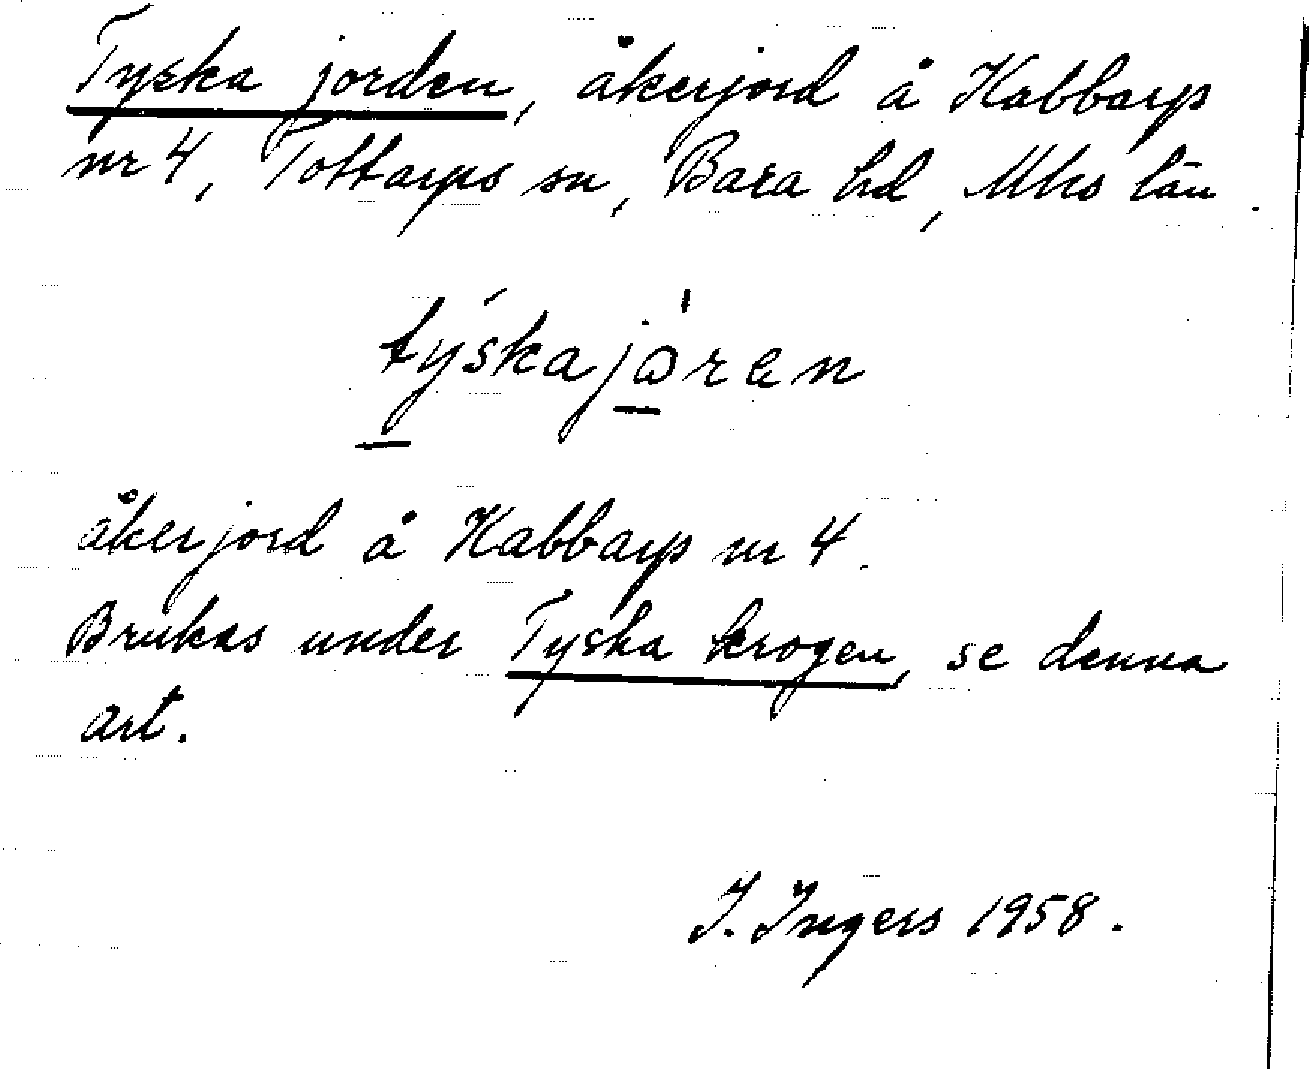 Tyska jorden, åkerjord å Kabbarp
nr 4, Tottarps sn, Bara hd, Mhs län.
týskajɷ̀ren
åkerjord å Kabbarp nr 4.
Brukas under Tyska krogen, se denna
art.
I. Ingers 1958.